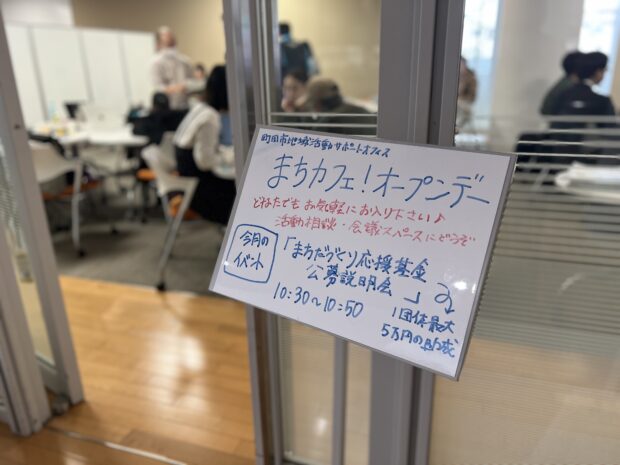 町田市地域活動サポートオフィス
まちカフェ!オープンデー
どなたでもお気軽にお入り下さい♪
活動相談・会議スペースにどうぞ
今月の
イベント
「まちだづくり応援基金
公募説明会」
10:30~10:50
1団体最大
5万円の助成